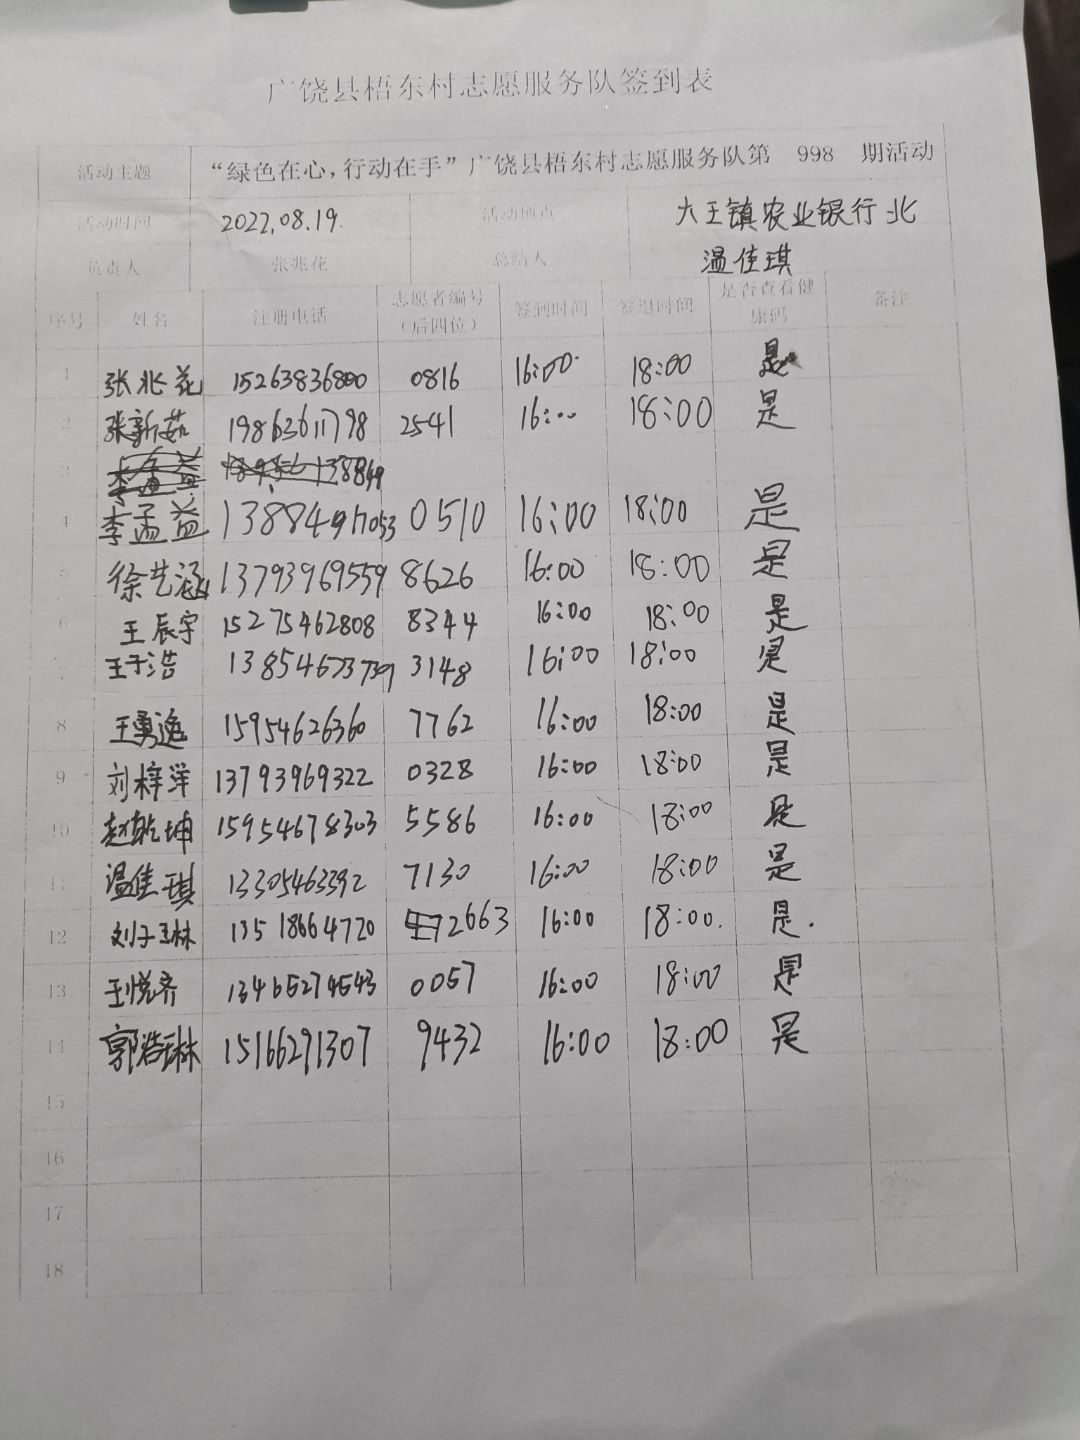 广饶县梧东村志愿服务队签到表
活动主题 “绿色在心，行动在手”广饶县梧东村志愿服务队第 998 期活动
活动时间 2022.08.19. 活动地点 大王镇农业银行北
负责人 张兆花 总结人 温佳琪
序号 姓名 注册电话 志愿者编号（后四位） 签到时间 签退时间 是否查看健康码 备注
1 张兆花 15263836800 0816 16:00 18:00 是
2 张新茹 19863611798 2541 16:00 18:00 是
3
4 李孟益 13884917053 0510 16:00 18:00 是
5 徐艺涵 13793969559 8626 16:00 18:00 是
6 王辰宇 15275462808 8344 16:00 18:00 是
7 王于浩 13854673739 3148 16:00 18:00 是
8 王勇逸 15954626360 7762 16:00 18:00 是
9 刘梓洋 13793969322 0328 16:00 18:00 是
10 赵乾坤 15954678303 5586 16:00 18:00 是
11 温佳琪 13305463392 7130 16:00 18:00 是
12 刘子琳 13518664720 2663 16:00 18:00. 是.
13 王悦齐 13465274543 0057 16:00 18:00 是
14 郭浩琳 15166291307 9432 16:00 18:00 是
15
16
17
18